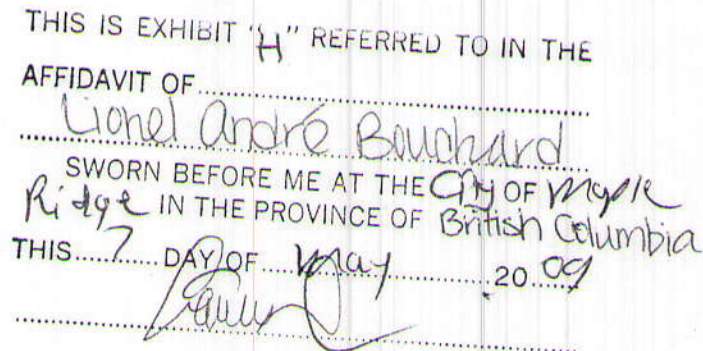 THIS IS EXHIBIT "H" REFERRED TO IN THE
AFFIDAVIT OF
Lionel André Bouchard
SWORN BEFORE ME AT THE City OF Maple
Ridge IN THE PROVINCE OF British Columbia
THIS 7 DAY OF May 20 09